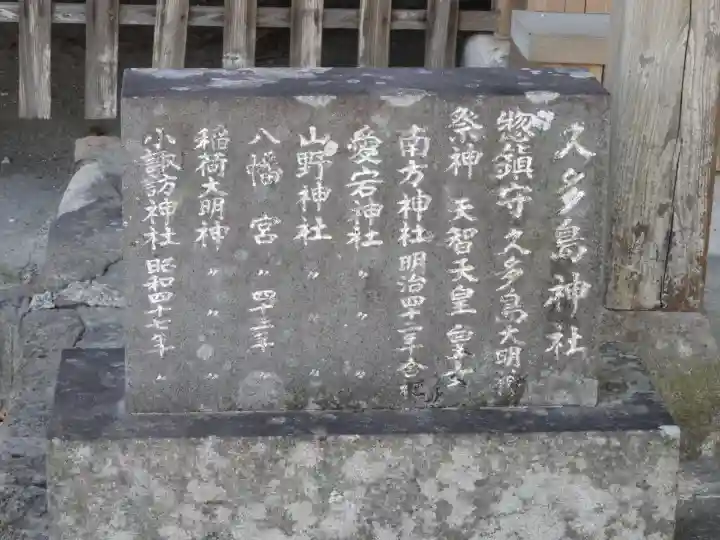 久多島神社
惣鎮守久多島大明神
祭神 天智天皇皇女
南方神社明治四十二年合祀
愛宕神社 〃 〃
山野神社 〃 〃
八幡宮 〃 四十三年 〃
稲荷大明神 〃 〃 〃
小諏訪神社 昭和四十七年 〃